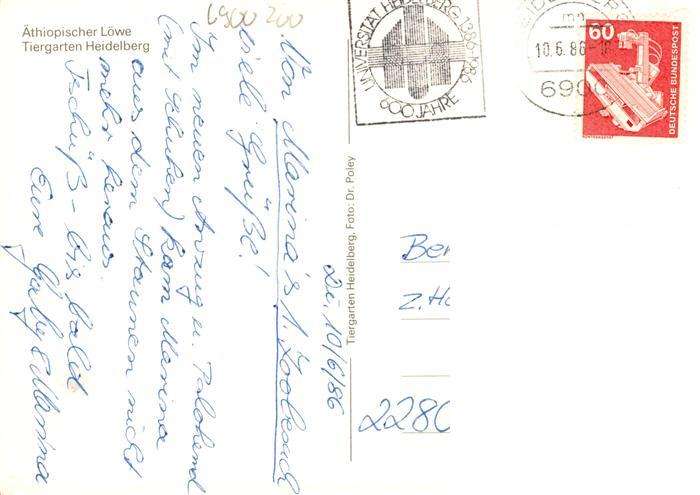 6900 200
Äthiopischer Löwe
Tiergarten Heidelberg
Di. 10/6/86
Von Marina's 1. Zoobesuch
viele Grüße!
Im neuen Anzug u. Palohemd
(mit Glauben) kam Marina
aus dem Staunen nicht
mehr heraus.
Tschüß - bis bald
Eure Gaby & Marina
Tiergarten Heidelberg, Foto: Dr. Poley
UNIVERSITÄT HEIDELBERG 1386-1986
600 JAHRE
10.6.86-18
6900
60
DEUTSCHE BUNDESPOST
Ber
z.Ha
2280